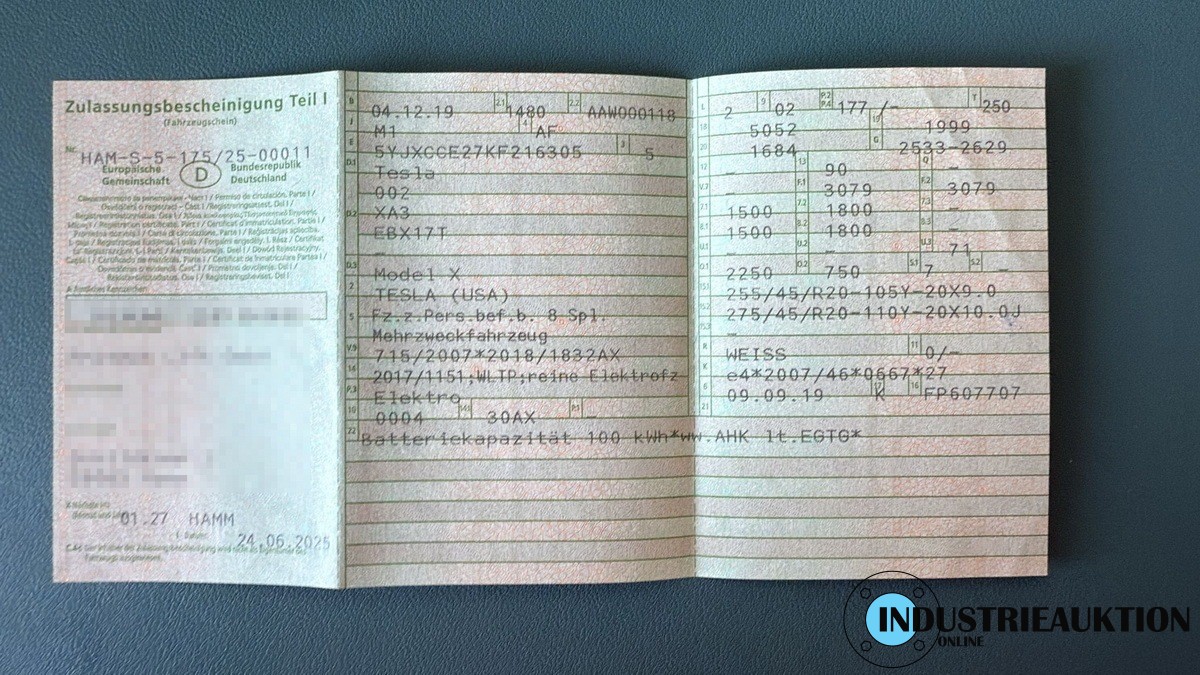 Zulassungsbescheinigung Teil I
(Fahrzeugschein)
Nr. HAM-S-5-175/25-00011
Europäische Gemeinschaft
D
Bundesrepublik Deutschland
01.27 HAMM
24.06.2025
B 04.12.19 2.1 1480 2.2 AAW000118
J M1 4 AF
E 5YJXCCE27KF216305 3 5
D.1 Tesla
002
D.2 XA3
EBX17T
–
D.3 Model X
2 TESLA (USA)
5 Fz.z.Pers.bef.b. 8 Spl.
Mehrzweckfahrzeug
V.9 715/2007*2018/1832AX
14 2017/1151;WLTP;reine Elektrofz
P.3 Elektro
10 0004 14.1 30AX P.1 –
22 Batteriekapazität 100 kWh*ww.AHK lt.EGTG*
L 2 9 02 P.2 P.4 177 /– T 250
18 5052 19 1999
20 1684 G 2533-2629
12 – 13 90 Q –
V.7 – F.1 3079 F.2 3079
7.1 1500 7.2 1800 7.3 –
8.1 1500 8.2 1800 8.3 –
U.1 – U.2 – U.3 71
O.1 2250 O.2 750 S.1 7 S.2 –
15.1 255/45/R20-105Y-20X9.0
15.2 275/45/R20-110Y-20X10.0J
15.3 –
R WEISS 11 0/–
K e4*2007/46*0667*27
6 09.09.19 17 K 16 FP607707
21
INDUSTRIEAUKTION
ONLINE